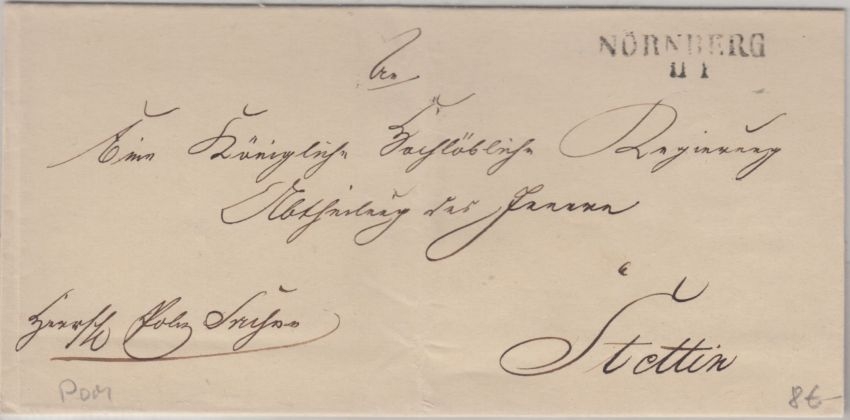 NÖRNBERG
11 1
An
Eine Königliche Hochlöbliche Regierung
Abtheilung des Innern
a
Stettin
Herrsch Poliz Sachen
Pom
8€-